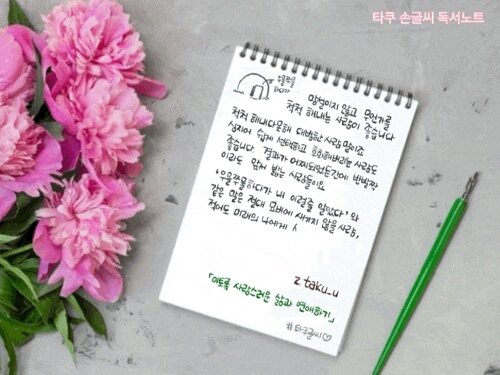 타쿠 손글씨 독서노트
우물쭈물
하다가
망설이지 않고 무언가를
척척 해내는 사람이 좋습니다
척척 해내다못해 대범한 사람 말이죠.
심지어 쉽게 선택하고 후회해버리는 사람도
좋습니다. 결과가 어찌되었든간에 반발짝
이라도 앞서 밟는 사람들이요
'우물쭈물하다가 내 이럴줄 알았다' 와
같은 말은 절대 묘비에 새기지 않을 사람,
적어도 미래의 나에게
z.taku_u
「이토록 사랑스러운 삶과 연애하기」
#타쿠글씨♡